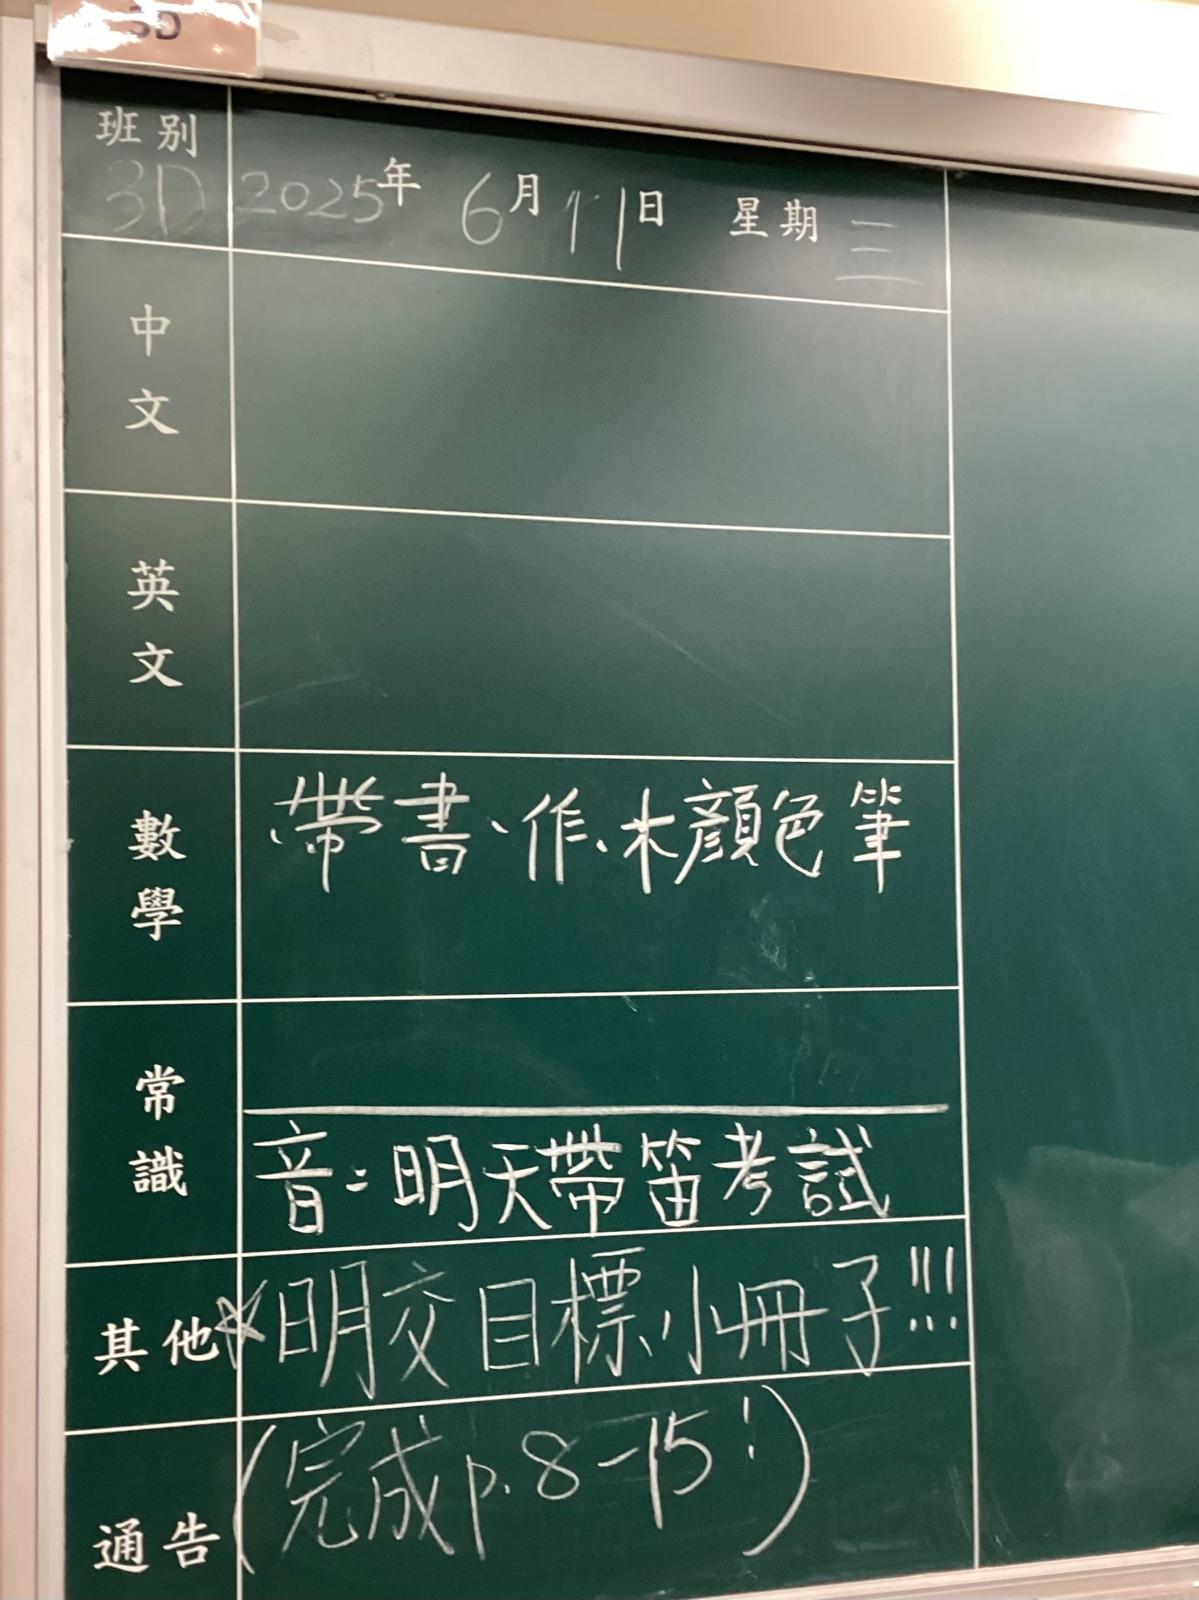 3D
班別
3D 2025年 6月11日 星期三
中文
英文
數學 帶書、作、木顏色筆
常識
音：明天帶笛考試
其他 ☆明交目標小冊子!!!
通告 (完成p.8-15!)